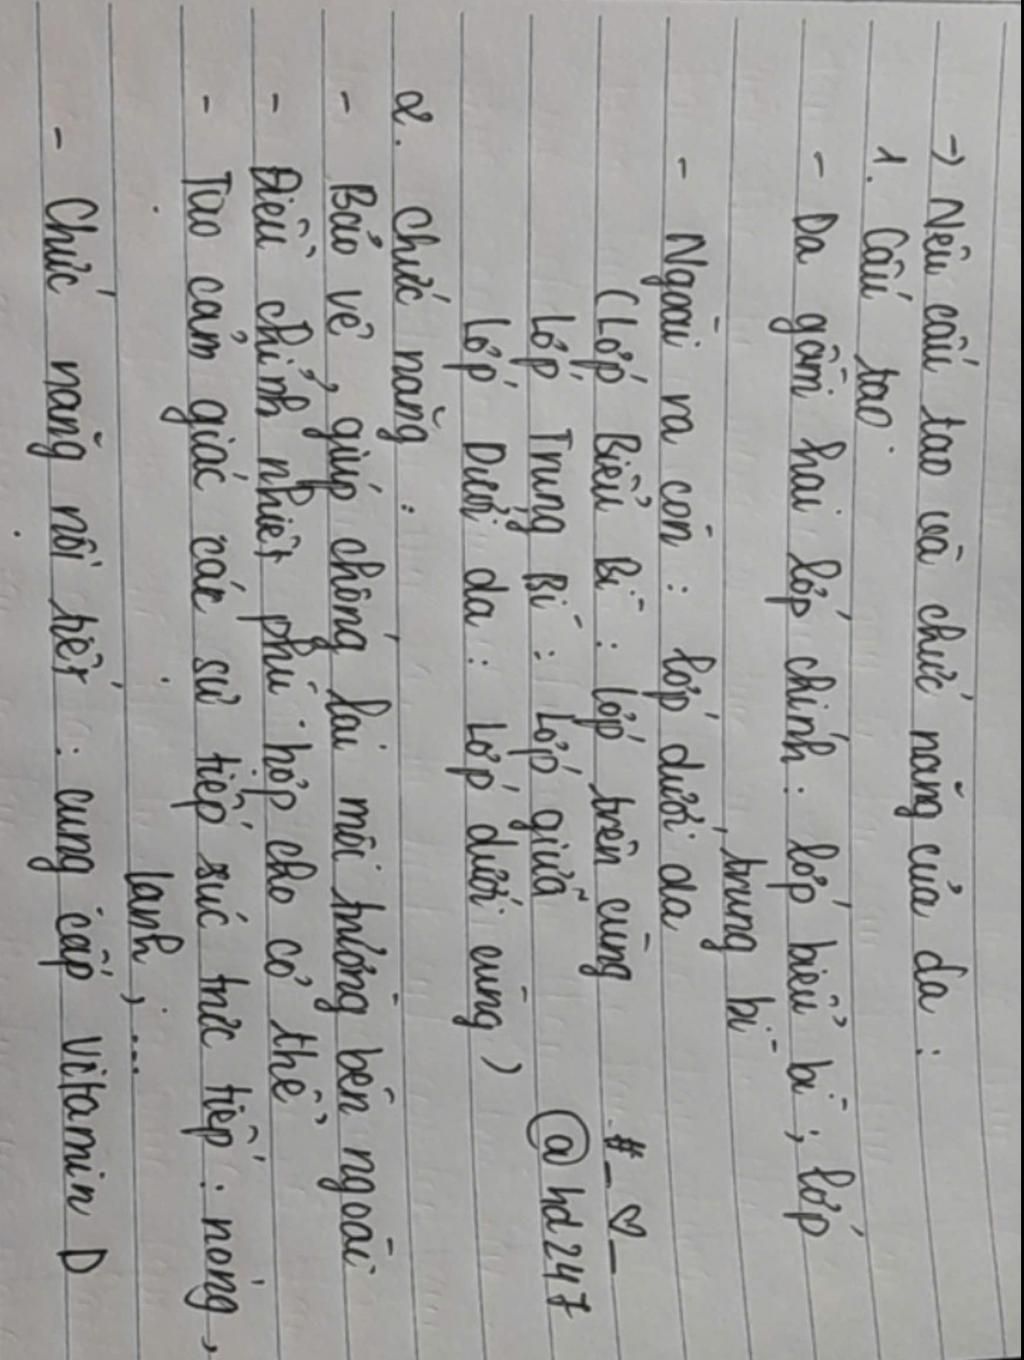 → Nêu cấu tạo và chức năng của da :
1. Cấu tạo.
- Da gồm hai lớp chính : lớp biểu bì ; lớp
trung bì
- Ngoài ra còn : lớp dưới da
(Lớp Biểu Bì : lớp trên cùng #_♡_
Lớp Trung Bì : Lớp giữa @hd247
Lớp Dưới da : Lớp dưới cùng)
2. Chức năng :
- Bảo vệ, giúp chống lại môi trường bên ngoài
- Điều chỉnh nhiệt phù hợp cho cơ thể
- Tạo cảm giác các sự tiếp xúc trực tiếp : nóng,
lạnh, ...
- Chức năng nội tiết : cung cấp vitamin D